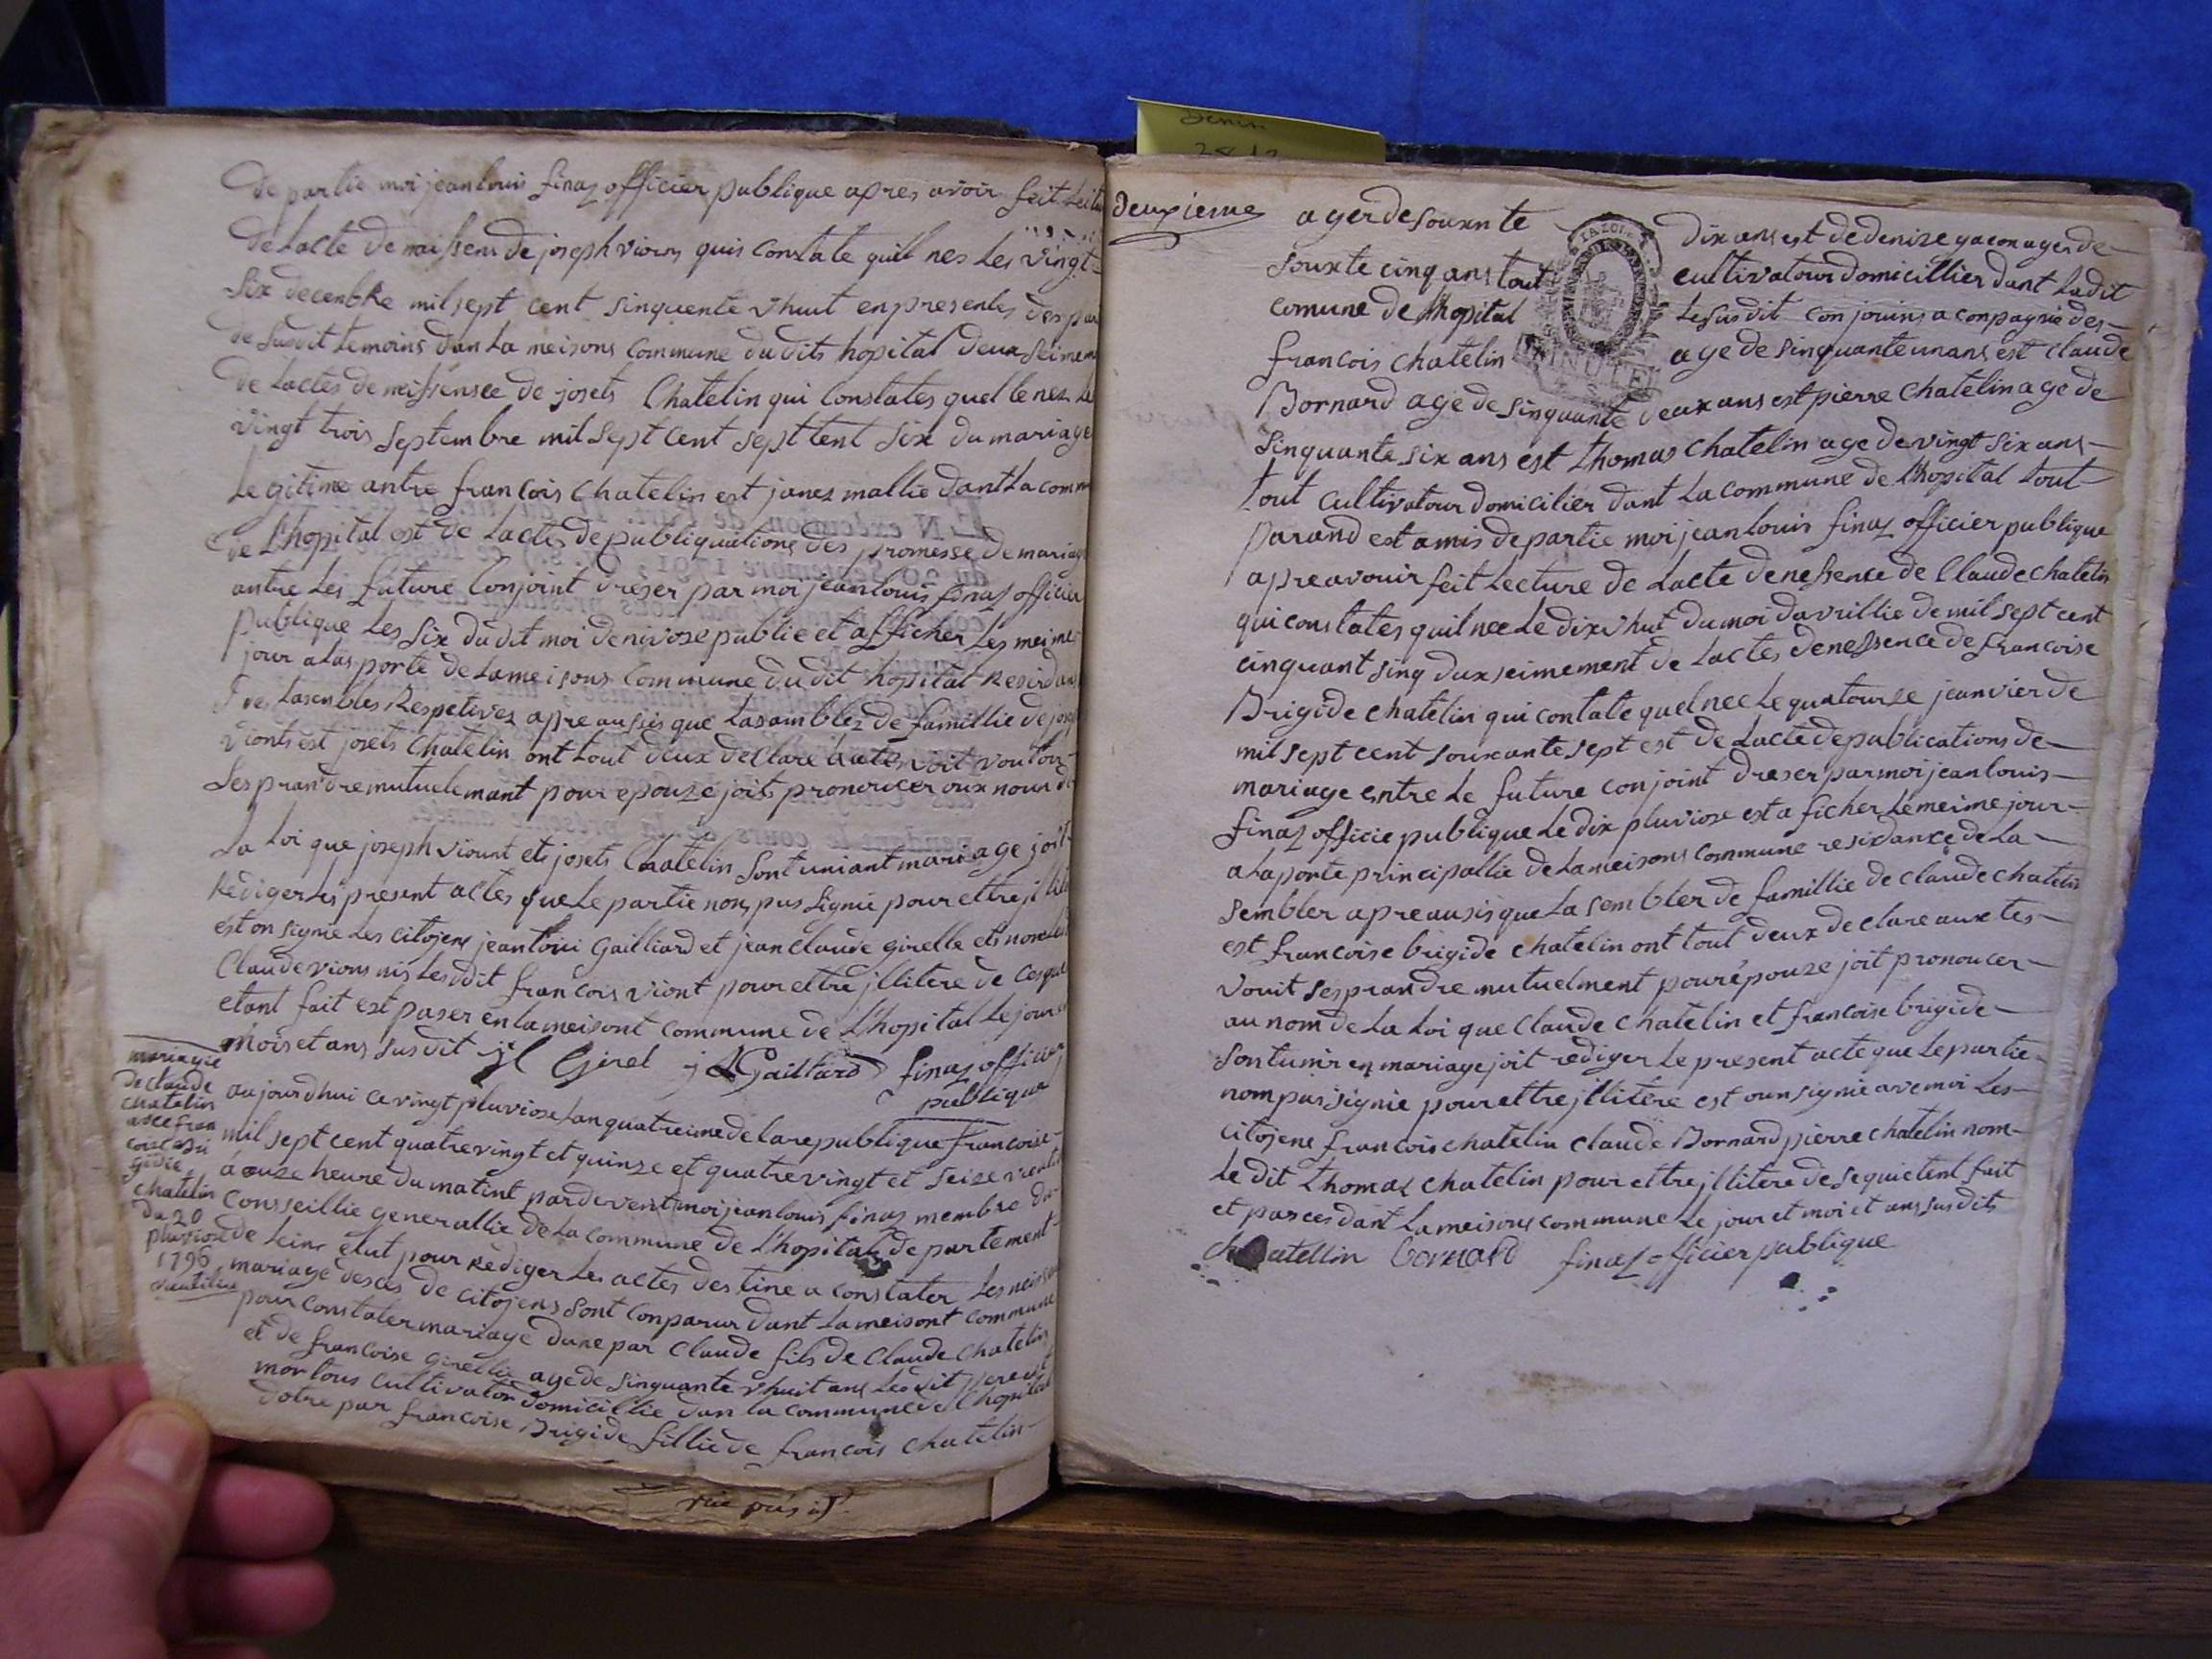 de partie moi jean louis finaz officier publique apres avoir feit
de Lacte de naissens de joseph vions quis constate quil nes les vingt
six decenbre mil sept cent sinquente vhuit en presentes des
de susdit temoins dan la meisons commune du dits hopital deux seimem
de Lactes de naissensce de josets Chatelin qui constates quel le nez le
vingt trois septembre mil sept cent sept tent six du mariage
Legitime antre francois chatelin est janez mallie dant la comm
de Lhopital est de Lactes de publiquations des promesse de mariag
antre Les future Conjoint dreser par moi jean louis finaz officier
publique Les six du dit moi de nivose publie et afficher Les meime
jour a las porte de La meisons Commune du dit hopital
Lasenbles Respetives apre ausiis que Lasambles de famillie de jose
vionts est josets Chatelin ont tout deux declare voit vouloir
Ses prandre mutuelemant pour epouze joits pronoucer oux noun de
La Loi que joseph viount ets josets Chatelin sont uniant mariage joit
Rediger Les present actes que Le partie nons pas signie pour ettre jllite
est on signie Les citojens jean loui Gailliard et jean claude girelle ets non
Claude vions nis Lesdit francois viont pour ettre jllitere de ces que
etant fait est paser en la meisont commune de L'hopital Le jour
mois et ans susdit jC Girel j L Gaillard finaz officier
publique
mariagie
de claude
chatelin
avec fran
coise bri
gidie
chatelin
du 20
pluviose
1796
aujourdhui ce vingt pluviose Lan quatreime de la republique francoise
mil sept cent quatre vingt et quinse et quatre vingt et seise
a ouze heure du matint pardevent moi jean louis finaz membre du
Consseillie generallie de La commune de L'hopital de partement
de Lein elut pour Rediger Les actes destine a constater Les neis
mariage deses de citojens sont conparus dant La meisont commune
pour constater mariage dune par claude fils de claude chatelin
et de francoise girellie age de sinquante vhuit ans Lesdit
mor tous cultivator domicillie dan la commune de Lhopital
dotre par francoise Brigide fillie de francois chatelin
deuxieme ager de souxnte dix ans est de denize gacon ager de
souxte cinq ans tout cultivatour domicillier dant Ladit
comune de Lhopital Le susdit conjouins a conpagnie des
francois chatelin age de sinquante un ans est claude
Bornard age de sinquante deux ans est pierre chatelin age de
sinquante six ans est thomas chatelin age de vingt six ans
tout cultivatour domicilier dant La commune de Lhopital tout
parand est amis de partie moi jean louis finaz officier publique
apre avouir feit Lecture de Lacte de nessence de Claude chatelin
qui constates quil nee Le dix vhut du moi davrillie de mil sept cent
cinquant sinq duxseimement de Lactes de nessence de francoise
Brigide chatelin qui contate quel nee Le quatourze jeanvier de
mil sept cent souxante sept est de Lacte de publications de
mariage entre Le future conjoint dreser par moi jean louis
finaz officie publique Le dix pluviose est aficher Le meime jour
a la porte principallie de La meisons commune residance de La
sembler apre ausis que La sembler de famillie de claude chatelin
est francoise brigide chatelin ont tout deux declare auxe tes
vouit ses prandre mutuelment pour epouze joit pronoucer
au nom de La Loi que Claude chatelin et francoise brigide
sont unir en mariage joit rediger Le present acte que Le partie
nom pas signie pour ettre jllitere est oun signie ave moi Les
citojens francois chatelin claude Bornard pierre chatelin nom
Le dit thomas chatelin pour ettre jllitere de se qui etent fait
et pasces dant La meisons commune Le jour et moi et ans susdits
chatellin bornard finaz officier publique